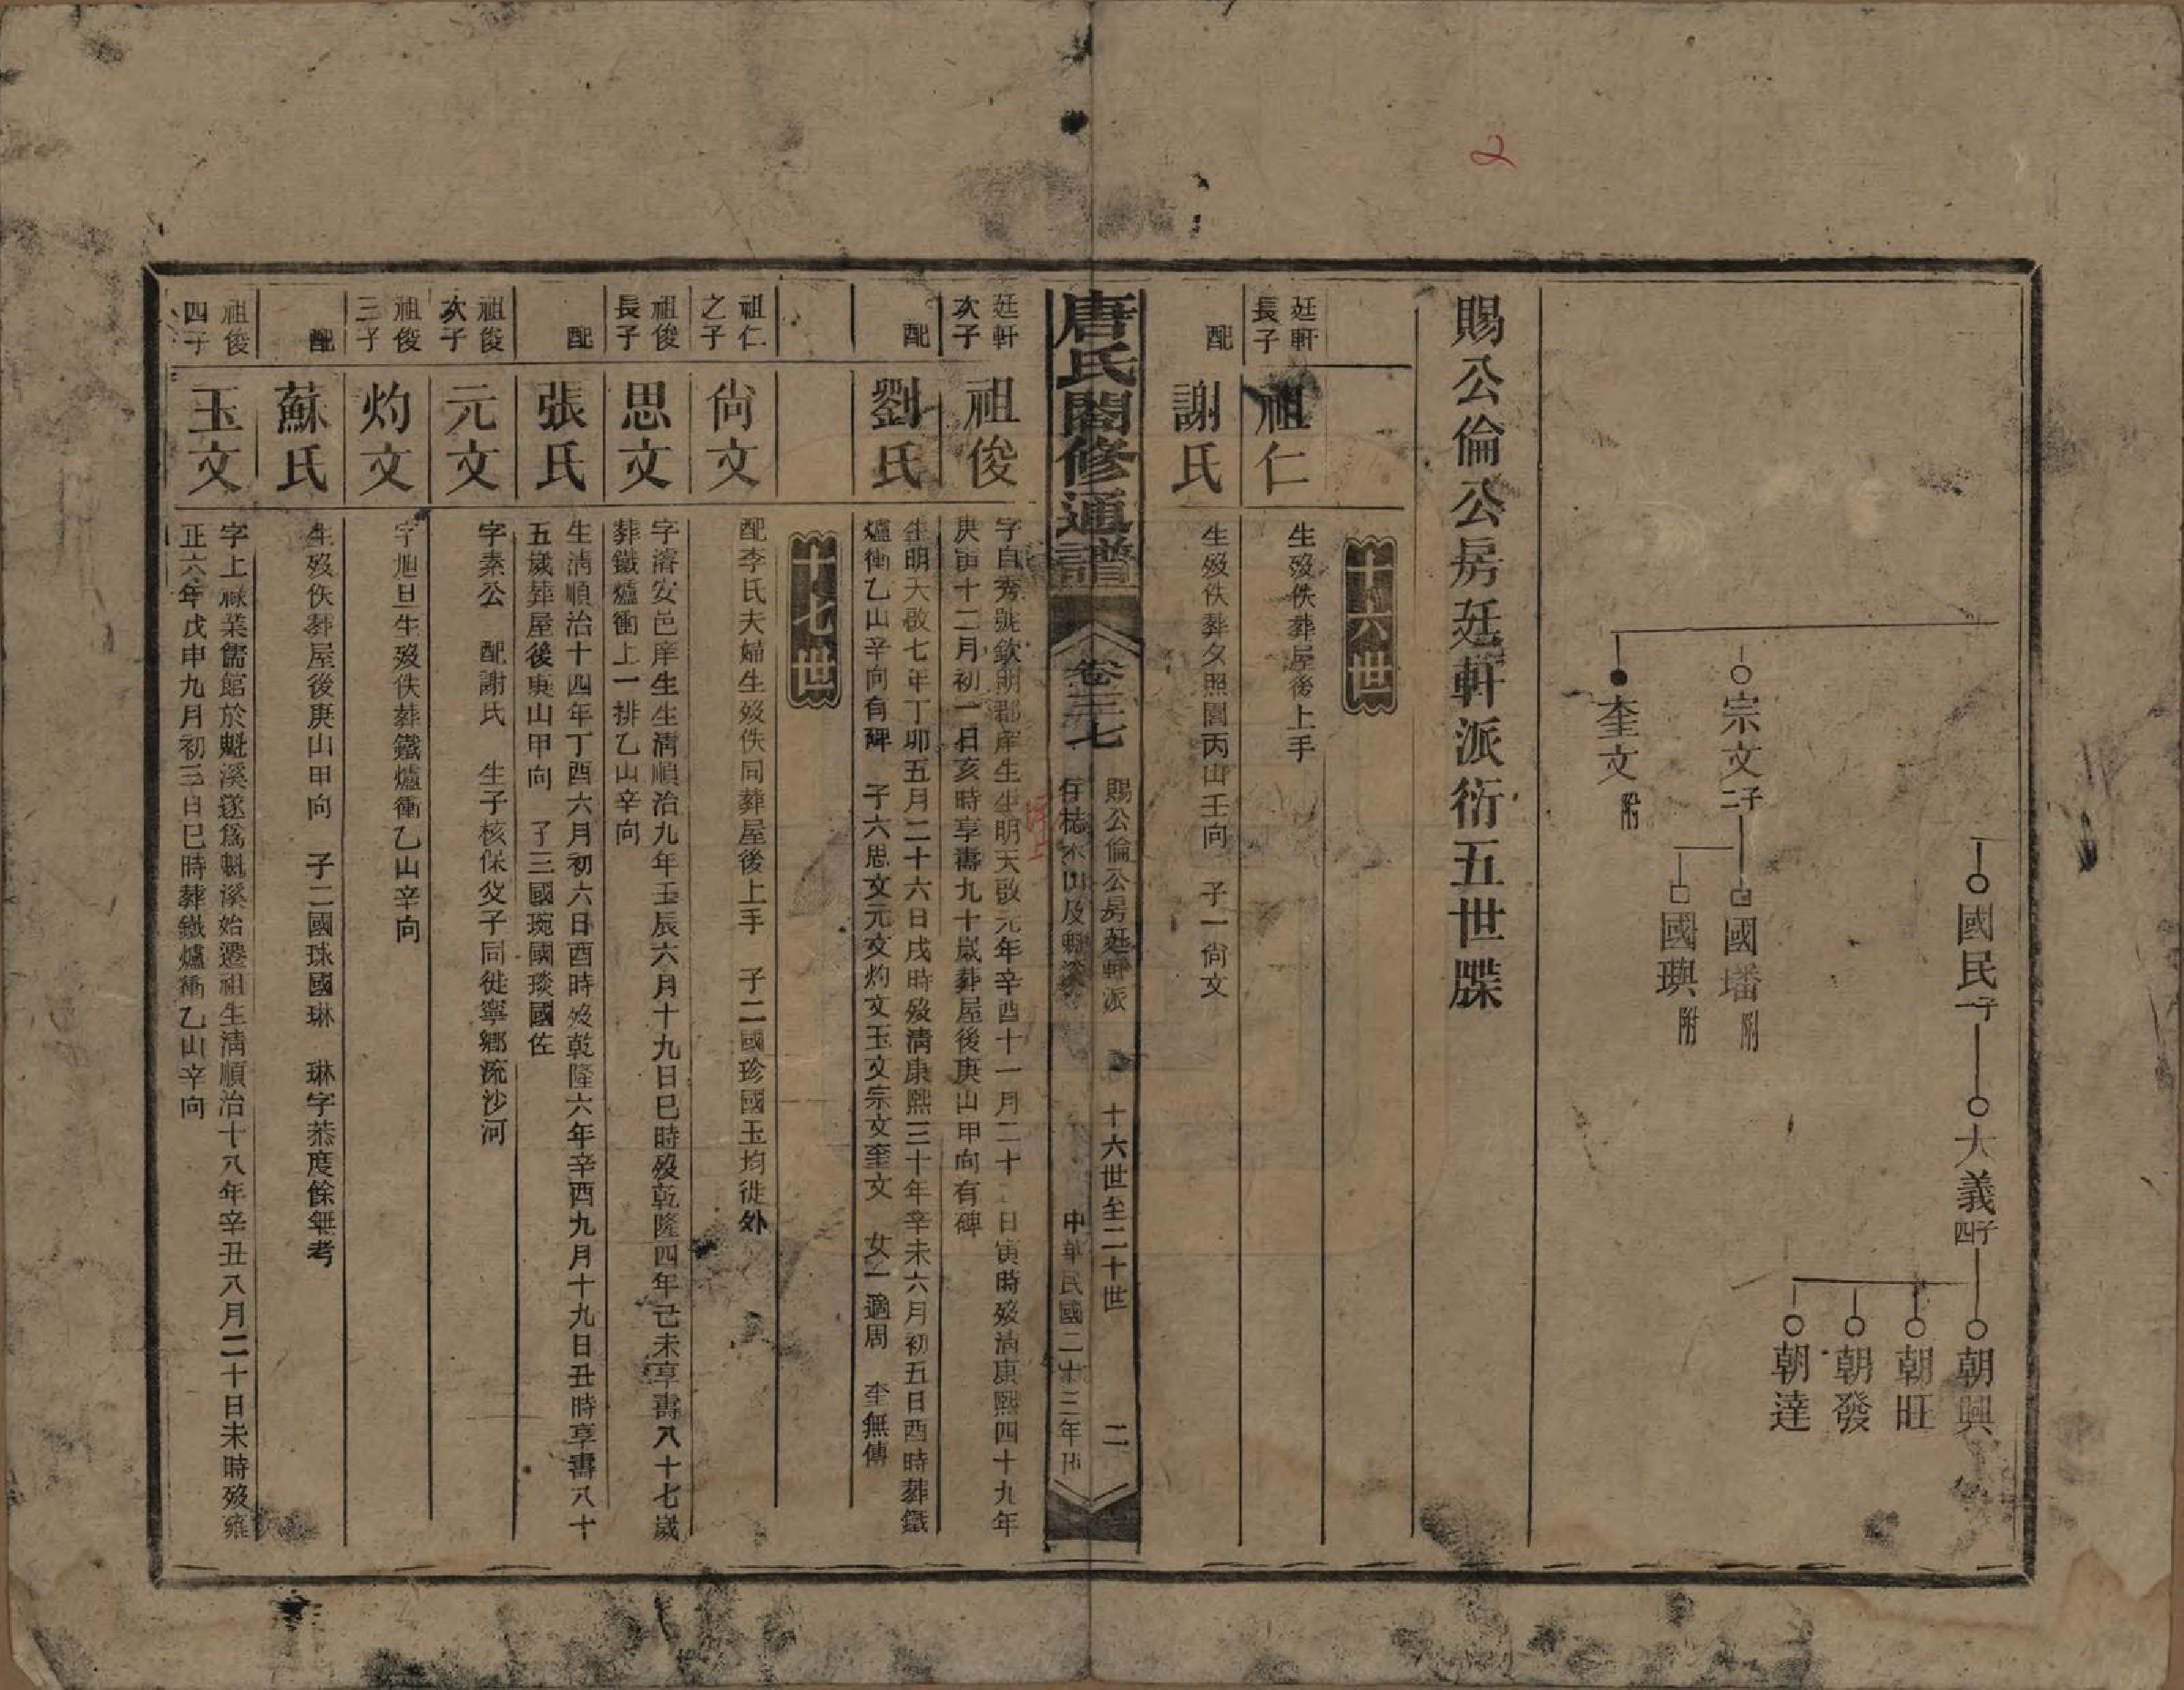 2
國民 一子
大義 四子
朝興
朝旺
朝發
朝達
宗文 二子
國墦 附
國璵 附
奎文 附
賜公倫公房廷軒派衍五世牒
十六世
廷軒長子
祖仁
生歿佚葬屋後上手
配
謝氏
生歿佚葬夕照園丙山壬向 子一尙文
唐氏闔修通譜
卷三七
賜公倫公房廷軒派 十六世至二十世 二
中華民國二十三年刊
廷軒次子
祖俊
字自秀號欽明郡庠生生明天啟元年辛酉十一月二十 日寅時歿淸康熙四十九年
庚寅十二月初一日亥時享壽九十歲葬屋後庚山甲向有碑
配
劉氏
生明天啟七年丁卯五月二十六日戌時歿淸康熙三十年辛未六月初五日酉時葬鐵
爐衝乙山辛向有碑 子六思文元文灼文玉文宗文奎文 女一適周 奎無傳
十七世
祖仁之子
尙文
配李氏夫婦生歿佚同葬屋後上手 子二國珍國玉均徙外
祖俊長子
思文
字濬安邑庠生生淸順治九年壬辰六月十九日巳時歿乾隆四年己未享壽八十七歲
葬鐵爐衝上一排乙山辛向
配
張氏
生淸順治十四年丁酉六月初六日酉時歿乾隆六年辛酉九月十九日丑時享壽八十
五歲葬屋後庚山甲向 子三國琬國琰國佐
祖俊次子
元文
字素公 配謝氏 生子核保父子同徙寧鄉流沙河
祖俊三子
灼文
字旭旦生歿佚葬鐵爐衝乙山辛向
配
蘇氏
生歿佚葬屋後庚山甲向 子二國球國琳 琳字恭度餘無考
祖俊四子
玉文
字上祿業儒館於魁溪遂爲魁溪始遷祖生淸順治十八年辛丑八月二十日未時歿雍
正六年戊申九月初三日巳時葬鐵爐衝乙山辛向